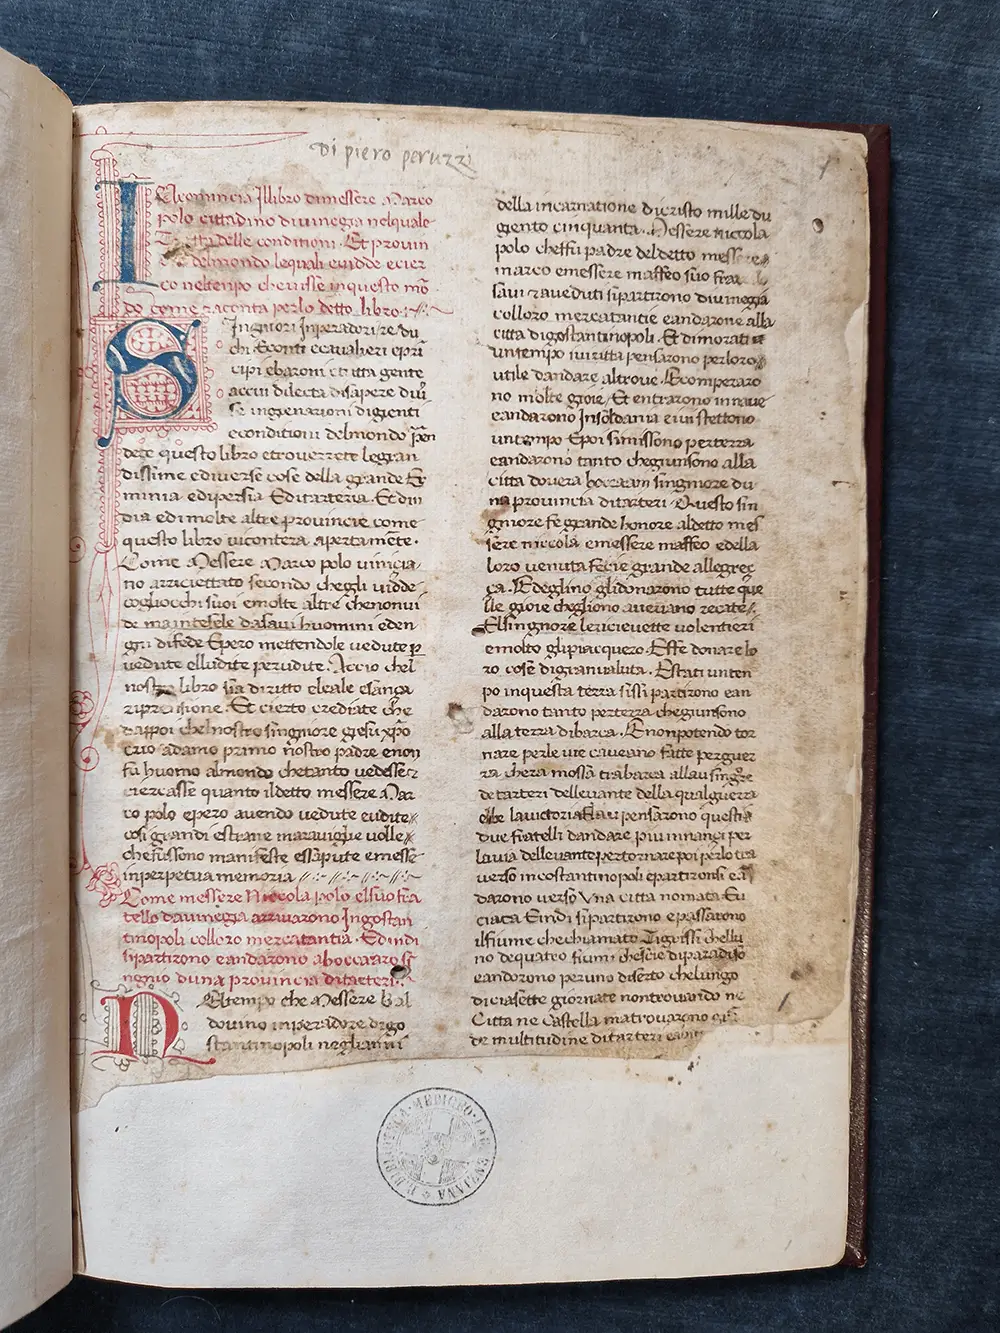 Di piero peruzzi
Incomincia Illibro dimessere Marco
polo cittadino divinegia nelquale
Tratta delle conditioni. Et provin
cie delmondo lequali evidde ecier
co neltenpo chevisse inquesto mo
do come raconta perlo detto libro
Singniori Inperadori re du
chi Econti ecavalieri epri
cipi ebaroni etutta gente
accui dilecta disapere
ingienerationi digienti
econditioni delmondo pren
dete questo libro etroverrete legran
dissime ediverse cose della grande Er
minia edipersia Editarteria. Et din
dia edimolte altre provincie come
questo libro viconterà apertamete.
Come Messere Marco polo vinicia
no arriciettato secondo chegli vidde
cogliocchi suoi emolte altre chenonvi
de maintesele dasavi huomini eden
gni difede Epero mettendole vedute p
vedute elludite perudite. Accio chel
nostro libro sia diritto eleale esança
riprensione. Et cierto crediate che
dappoi chelnostro singniore giesu xpo
crio adamo primo nostro padre enon
fu huomo almondo chetanto vedesse
ciercasse quanto ildetto messere Mar
co polo epero avendo vedute eudite
cosi grandi estrane maraviglie volle
chefussono manifeste essapute emesse
inperpetua memoria
Come messere Niccola polo elsuo fra
tello davinegia arrivarono Ingostan
tinopoli colloro mercatantia. Edindi
sipartirono eandarono aboccaro si
ngnio duna provincia ditarteri.
Neltempo che Messere Bal
dovino inperadore digo
stantinopoli neglianni
della incarnatione dicristo mille du
giento cinquanta. Messere niccola
polo cheffu padre deldetto messere
marco emessere maffeo suo
savi raveduti sipartirono divinegia
colloro mercatantie eandarone alla
citta digostantinopoli. Et dimorati
untempo iviritta pensarono perloro
utile dandare altrove. Ecomperaro
no molte gioie. Et entrarono innave
eandarono Insoldania eivi stettono
untempo Epoi simissono perterra
eandarono tanto chegiunsono alla
citta dovera singniore du
na provincia ditarteri. Questo sin
gniore fe grande honore aldetto mes
sere niccola emessere maffeo edella
loro venuta fecie grande allegrec
ça. Edeglino glidonarono tutte que
lle gioie chegliono aveuano recate.
Elsingniore lericievette volentieri
emolto glipiacquero. Effe donare lo
ro cose digranvaluta. Estati unten
po inquesta terra sissi partirono ean
darono tanto perterra chegiunsono
alla terra dibarca. Enonpotendo tor
nare perle vie caveano fatte perguer
ra chera mossa trabarca allau
de tarteri dellevante della qualguerra
ebbe lavictoria pensarono questi
due fratelli dandare piu innançi per
lavia dellevante pertornare poi perlo tra
verso incostantinopoli epartironsi ean
darono verso una citta nomata Eu
ciaca Eindi sipartirono epassarono
ilfiume chechiamato Tigrissi chellu
no dequatro fiumi chescie diparadiso
eandorono peruno diserto chelungo
diciasette giornate nontrovando ne
Citta ne castella matrovarono
de multitudine ditarteri
R. BIBLIOTECA MEDICEO-LAURENZIANA